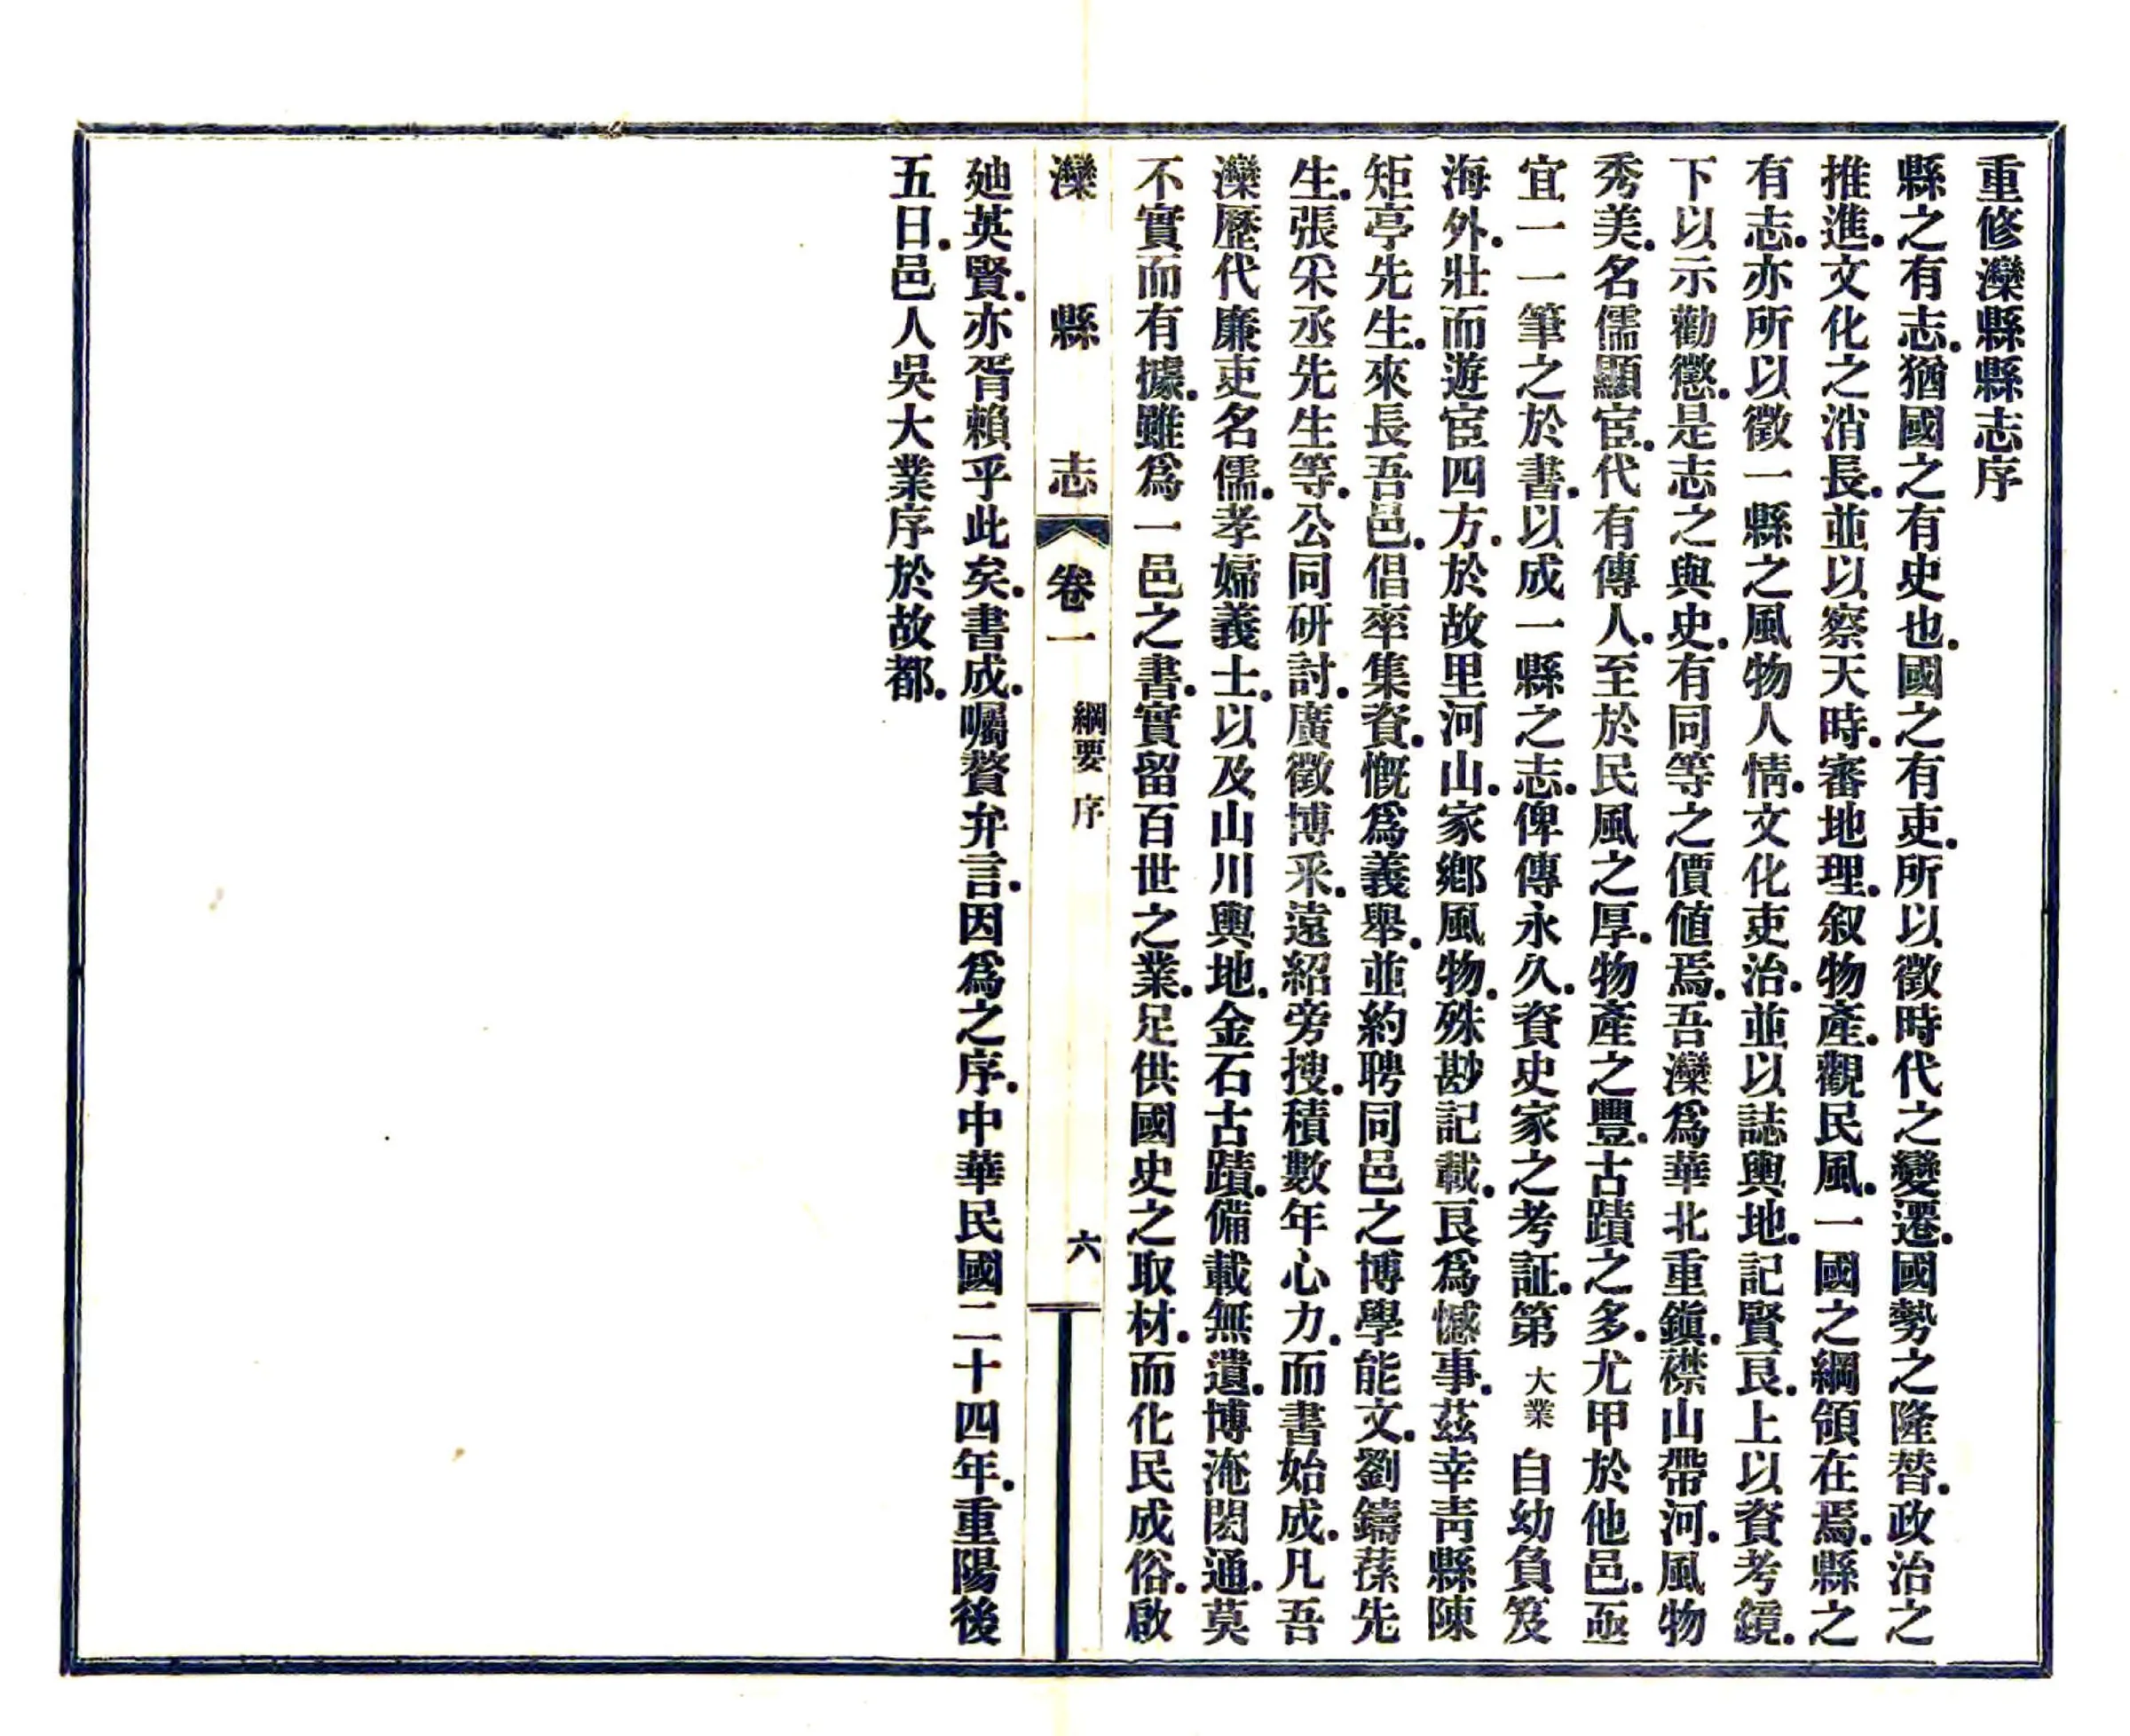 重修灤縣縣志序
縣之有志.猶國之有史也.國之有吏.所以徵時代之變遷.國勢之隆替.政治之
推進.文化之消長.並以察天時.審地理.叙物產.觀民風.一國之綱領在焉.縣之
有志.亦所以徵一縣之風物人情.文化吏治.並以誌輿地.記賢良.上以資考鏡.
下以示勸懲.是志之與史.有同等之價値焉.吾灤爲華北重鎭.襟山帶河.風物
秀美.名儒顯宦.代有傳人.至於民風之厚.物產之豐.古蹟之多.尤甲於他邑.亟
宜一一筆之於書.以成一縣之志.俾傳永久.資史家之考証.第大業自幼負笈
海外.壯而遊宦四方.於故里河山.家鄕風物.殊尠記載.良爲憾事.茲幸靑縣陳
矩亭先生.來長吾邑.倡率集資.慨爲義舉.並約聘同邑之博學能文.劉鑄蓀先
生.張采丞先生等.公同研討.廣徵博采.遠紹旁搜.積數年心力.而書始成.凡吾
灤歷代廉吏名儒.孝婦義士.以及山川輿地.金石古蹟.備載無遺.博淹閎通.莫
不實而有據.雖爲一邑之書.實留百世之業.足供國史之取材.而化民成俗.啟
灤縣志 卷一 綱要 序 六
廸英賢.亦胥賴乎此矣.書成.囑贅弁言.因爲之序.中華民國二十四年.重陽後
五日.邑人吳大業序於故都.